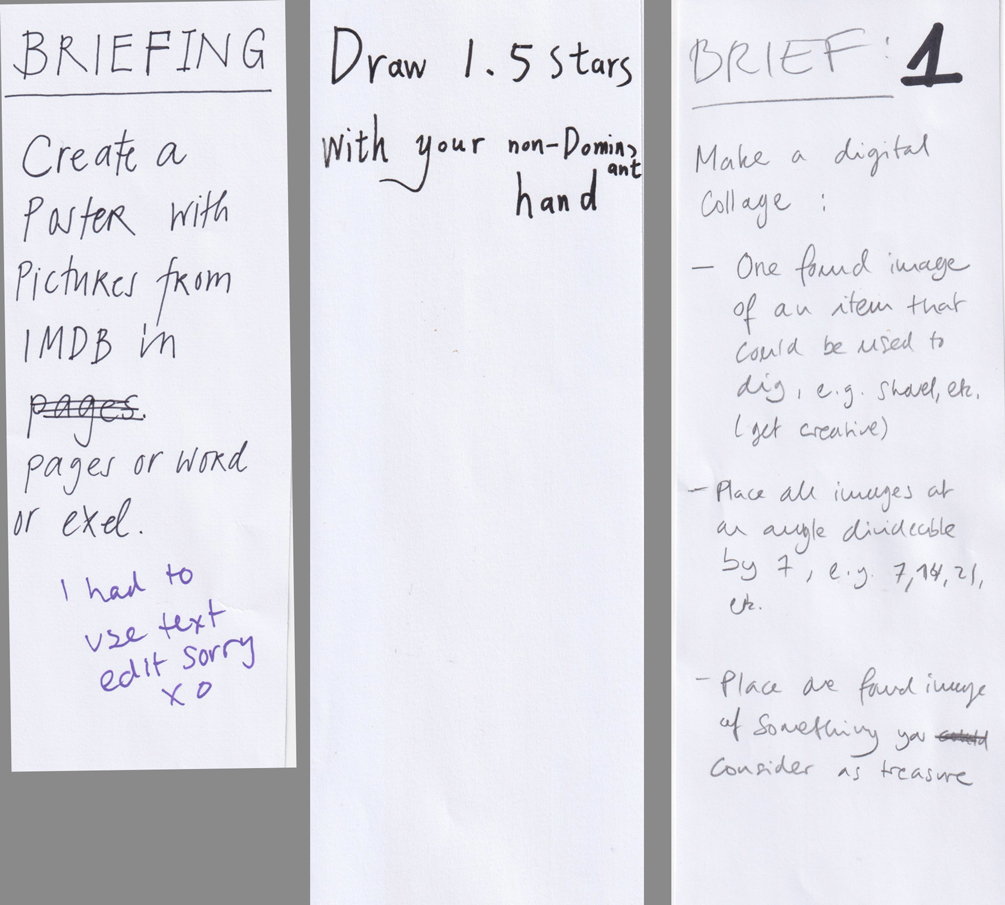 BRIEFING
Create a
Poster with
Pictures from
IMDB in
pages.
pages or word
or exel.
I had to
use text
edit sorry
XO
Draw 1.5 stars
with your non-Domin
ant
hand
BRIEF: 1
Make a digital
Collage :
— One found image
of an item that
could be used to
dig, e.g. shovel, etc.
(get creative)
— Place all images at
an angle divideable
by 7, e.g. 7, 14, 21,
etc.
- Place one found image
of something you could
consider as treasure